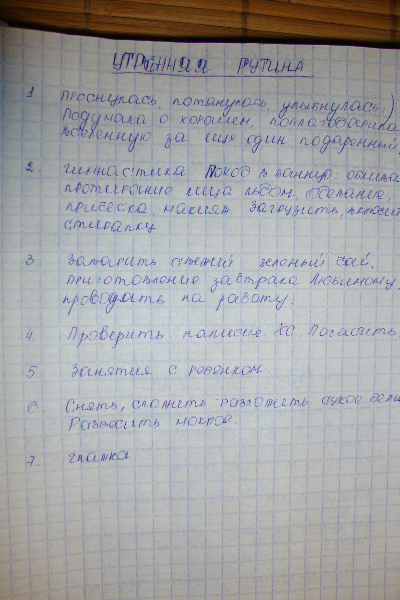 УТРЕННЯЯ РУТИНА
1 Проснулась, потянулась, улыбнулась:)
Подумала о хорошем, поблагодарила
вселенную за еще один подаренный
2. Гимнастика Поход в ванную:
протирание лица льдом, одевание,
прическа, макияж. Загрузить, включить
стиралку
3. Заварить свежий зеленый чай.
Приготовление завтрака Любимому,
проводить на работу.
4. Проверить наличие ХС. Погасить.
5 Занятия с ребенком.
6 Снять, сложить-разложить сухое белье
Развесить мокрое.
7. глажка